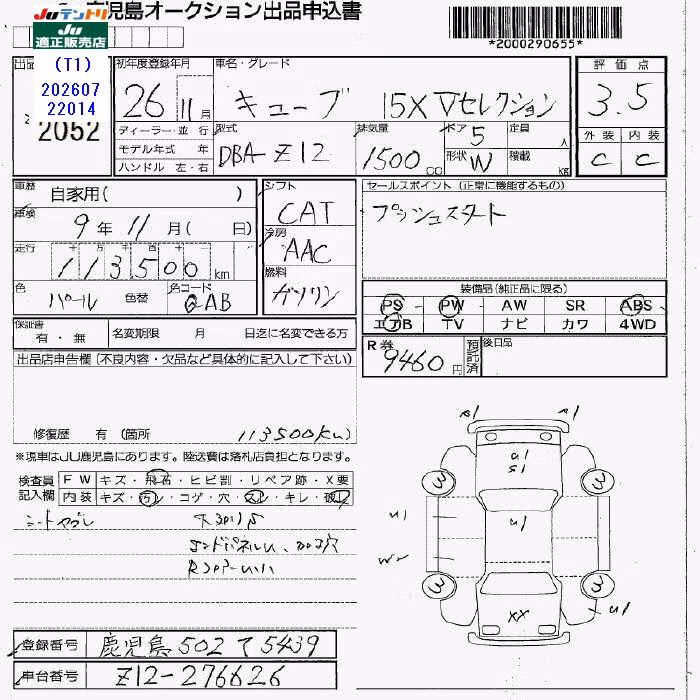 鹿児島オークション出品申込書
JUテントリ
JU
適正販売店
*2000290655*
(T1)
202607
22014
2052
初年度登録年月
26 11月
ディーラー・並 行
モデル年式 年
ハンドル 左・右
車名・グレード
キューブ 15X Vセレクション
型式
DBA-Z12
排気量
1500CC
ドア
5
形状
W
定員
人
積載
kg
評価点
3.5
外装 内装
C C
車歴
自家用( )
車検
9年 11月( 日)
走行
113500km
色
パール
色替
色コード
QAB
シフト
CAT
冷房
AAC
燃料
ガソリン
セールスポイント (正常に機能するもの)
プッシュスタート
装備品(純正品に限る)
PS・PW・AW SR ABS
エアB TV ナビ カワ 4WD
R券
9460円
預託済
後日品
保証書
有・無
名変期限 月 日迄に名変できる方
出品店申告欄(不良内容・欠品など具体的に記入して下さい)
修復歴 有 (箇所 113500km)
※現車はJU鹿児島にあります。陸送費は落札店負担となります。
検査員
記入欄
FW キズ・飛石・ヒビ割・リペア跡・X要
内装 キズ・汚レ・コゲ・穴・スレ・キレ・破レ
A1 A1
U1
S1
3 3
U1
U1
W
3 3
XX
U1
登録番号 鹿児島 502 て 5439
車台番号 Z12-276626